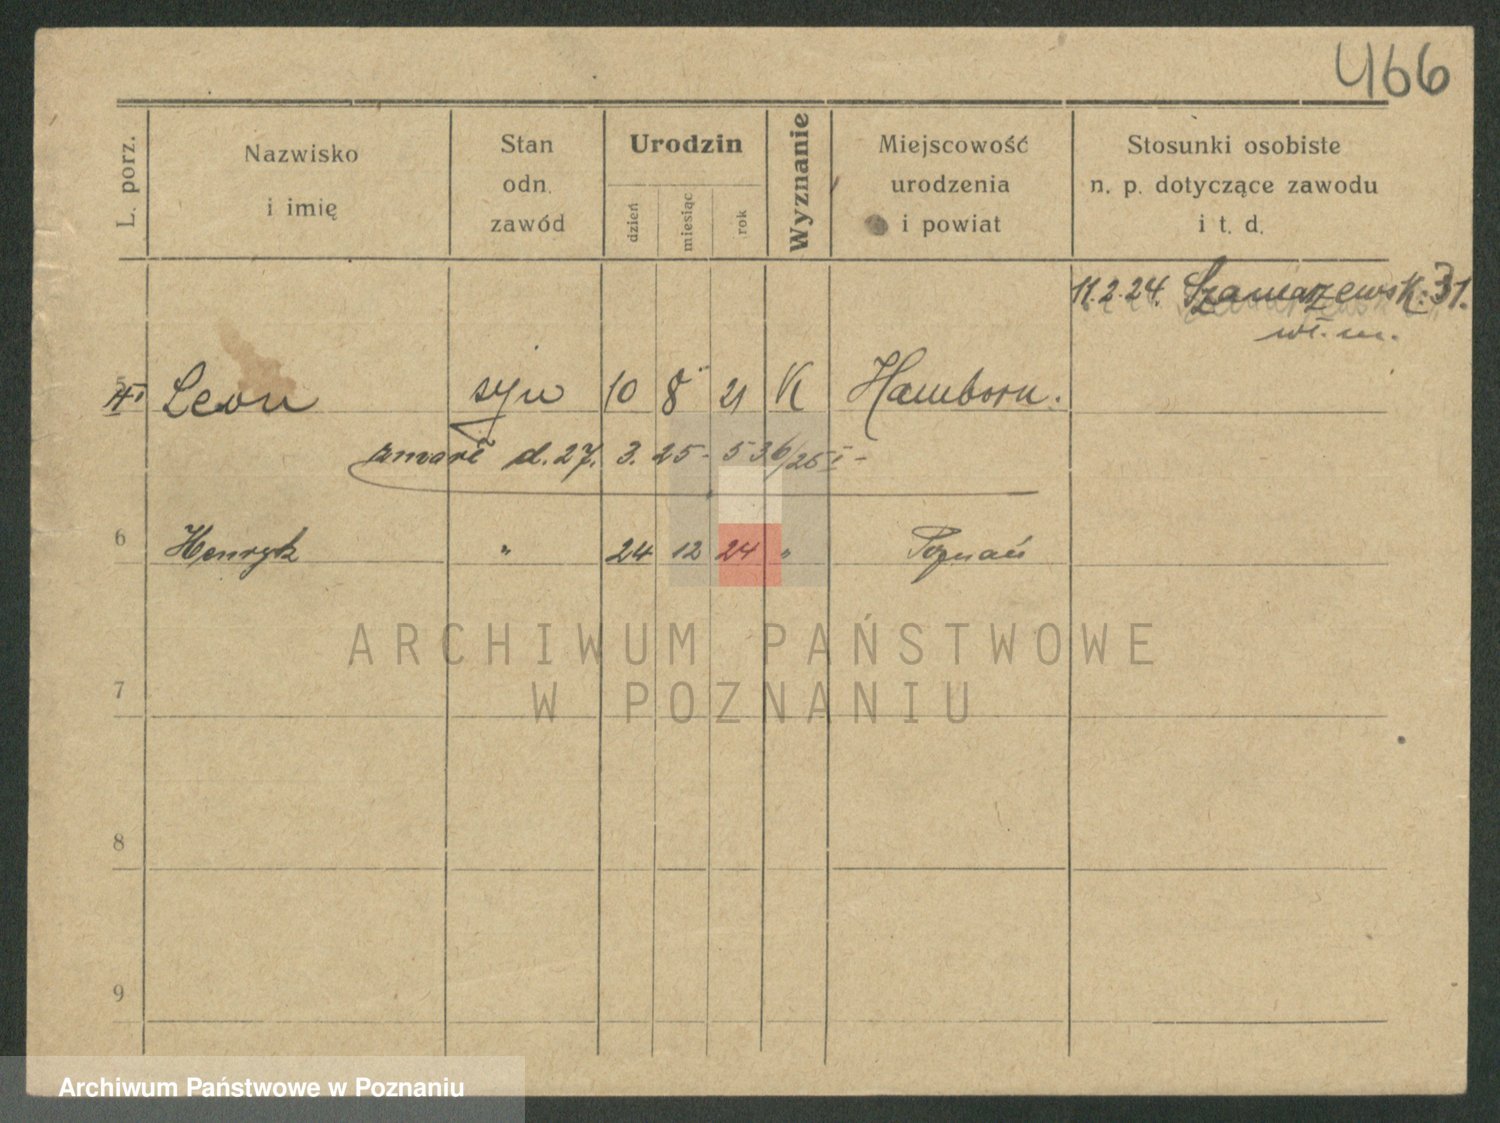 466
L. porz.
Nazwisko
i imię
Stan
odn.
zawód
Urodzin
dzień
miesiąc
rok
Wyznanie
Miejscowość
urodzenia
i powiat
Stosunki osobiste
n. p. dotyczące zawodu
i t. d.
11.2.24. 31.
wł. m.
5 Leon syn 10 8 21 K Hamborn.
zmarł d. 27. 3. 25 - 536/25 I -
6 Henryk " 24 12 24 " Poznań
ARCHIWUM PAŃSTWOWE
W POZNANIU
7
8
9
Archiwum Państwowe w Poznaniu